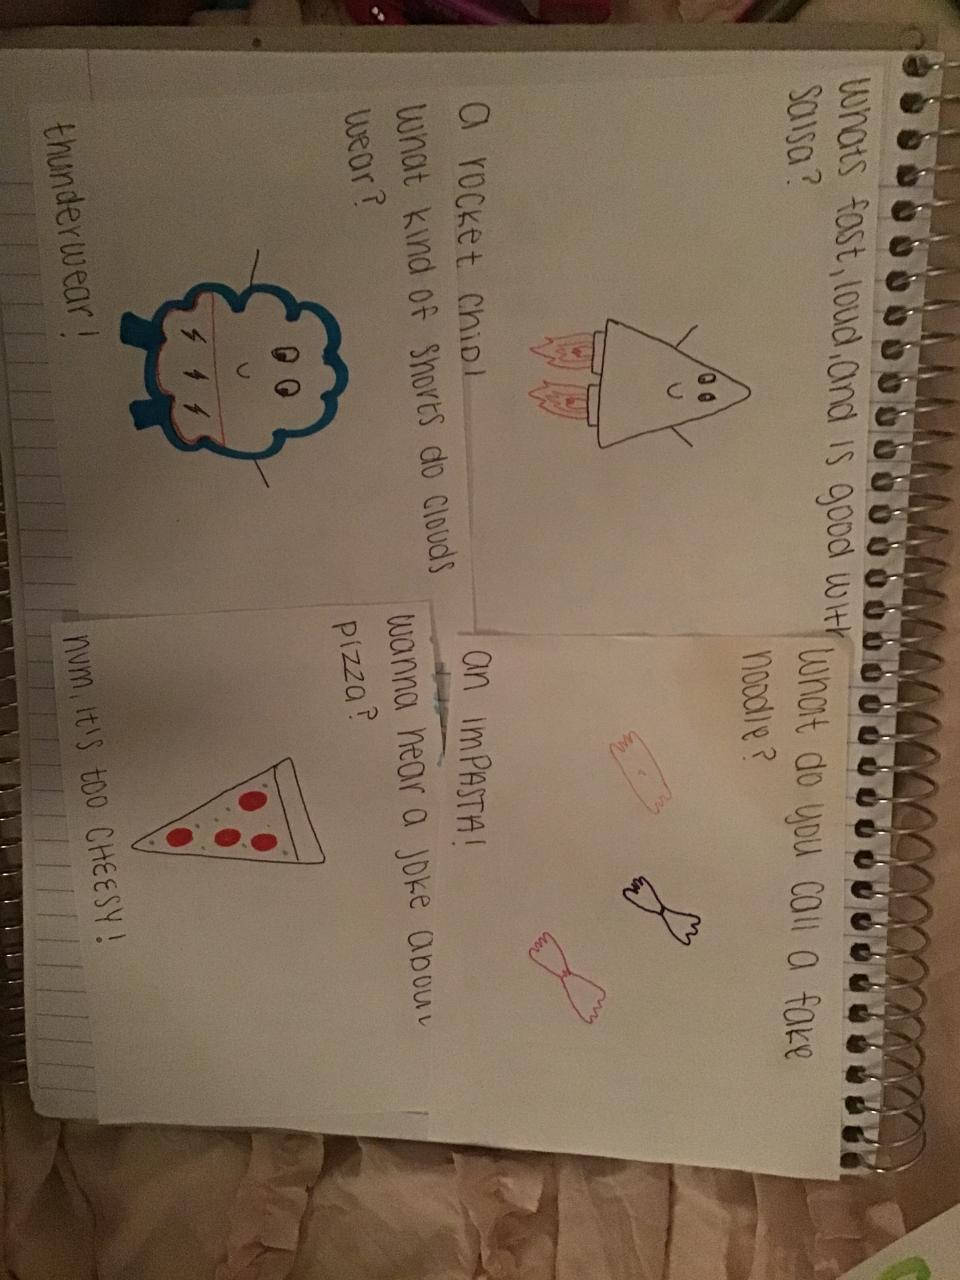 Whats fast, loud, and is good with
salsa?
a rocket chip!
What do you call a fake
noodle?
an imPASTA!
What kind of shorts do clouds
wear?
thunderwear!
wanna hear a joke about
pizza?
nvm, it's too CHEESY!